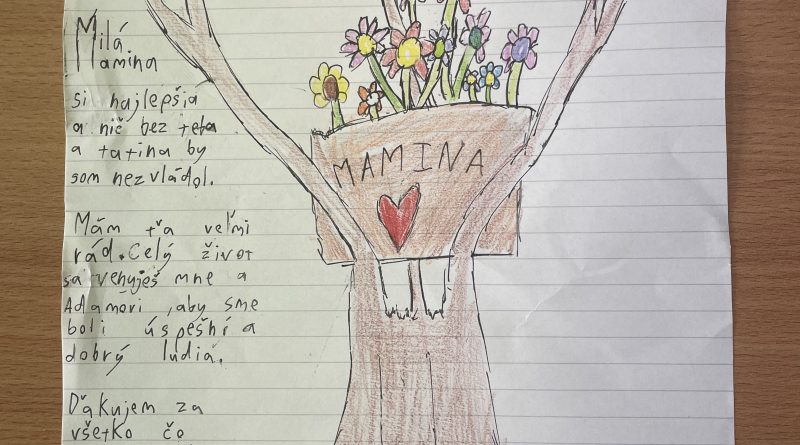 Milá
Mamina
si najlepšia
a nič bez teba
a tatina by
som nezvládol.
Mám ťa veľmi
rád. Celý život
sa venuješ mne a
Adamovi, aby sme
boli úspešní a
dobrý ľudia.
Ďakujem za
všetko čo
MAMINA